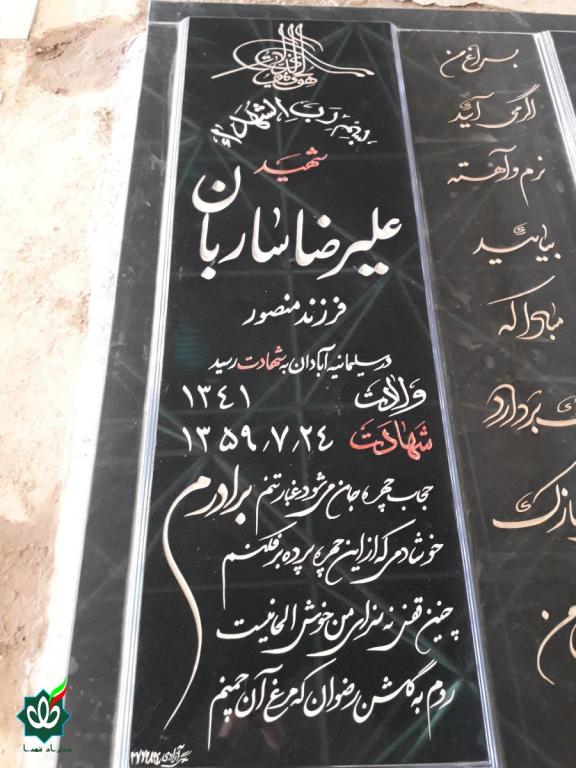 هوالباقی
بسم رب الشهداء
شهید
علیرضا ساربان
فرزند منصور
در سلیمانیه آبادان به شهادت رسید
ولادت ۱۳۴۱
شهادت ۱۳۵۹٫۷٫۲۴
برادرم
حجاب چهره جان می‌شود غبار تنم
خوشا دمی که از این چهره پرده برفکنم
چنین قفس نه سزای من خوش الحانیست
روم به گلشن رضوان که مرغ آن چمنم
بسراغ من
اگر می آئید
نرم و آهسته
بیائید
مبادا که
بردارد
نازک
من